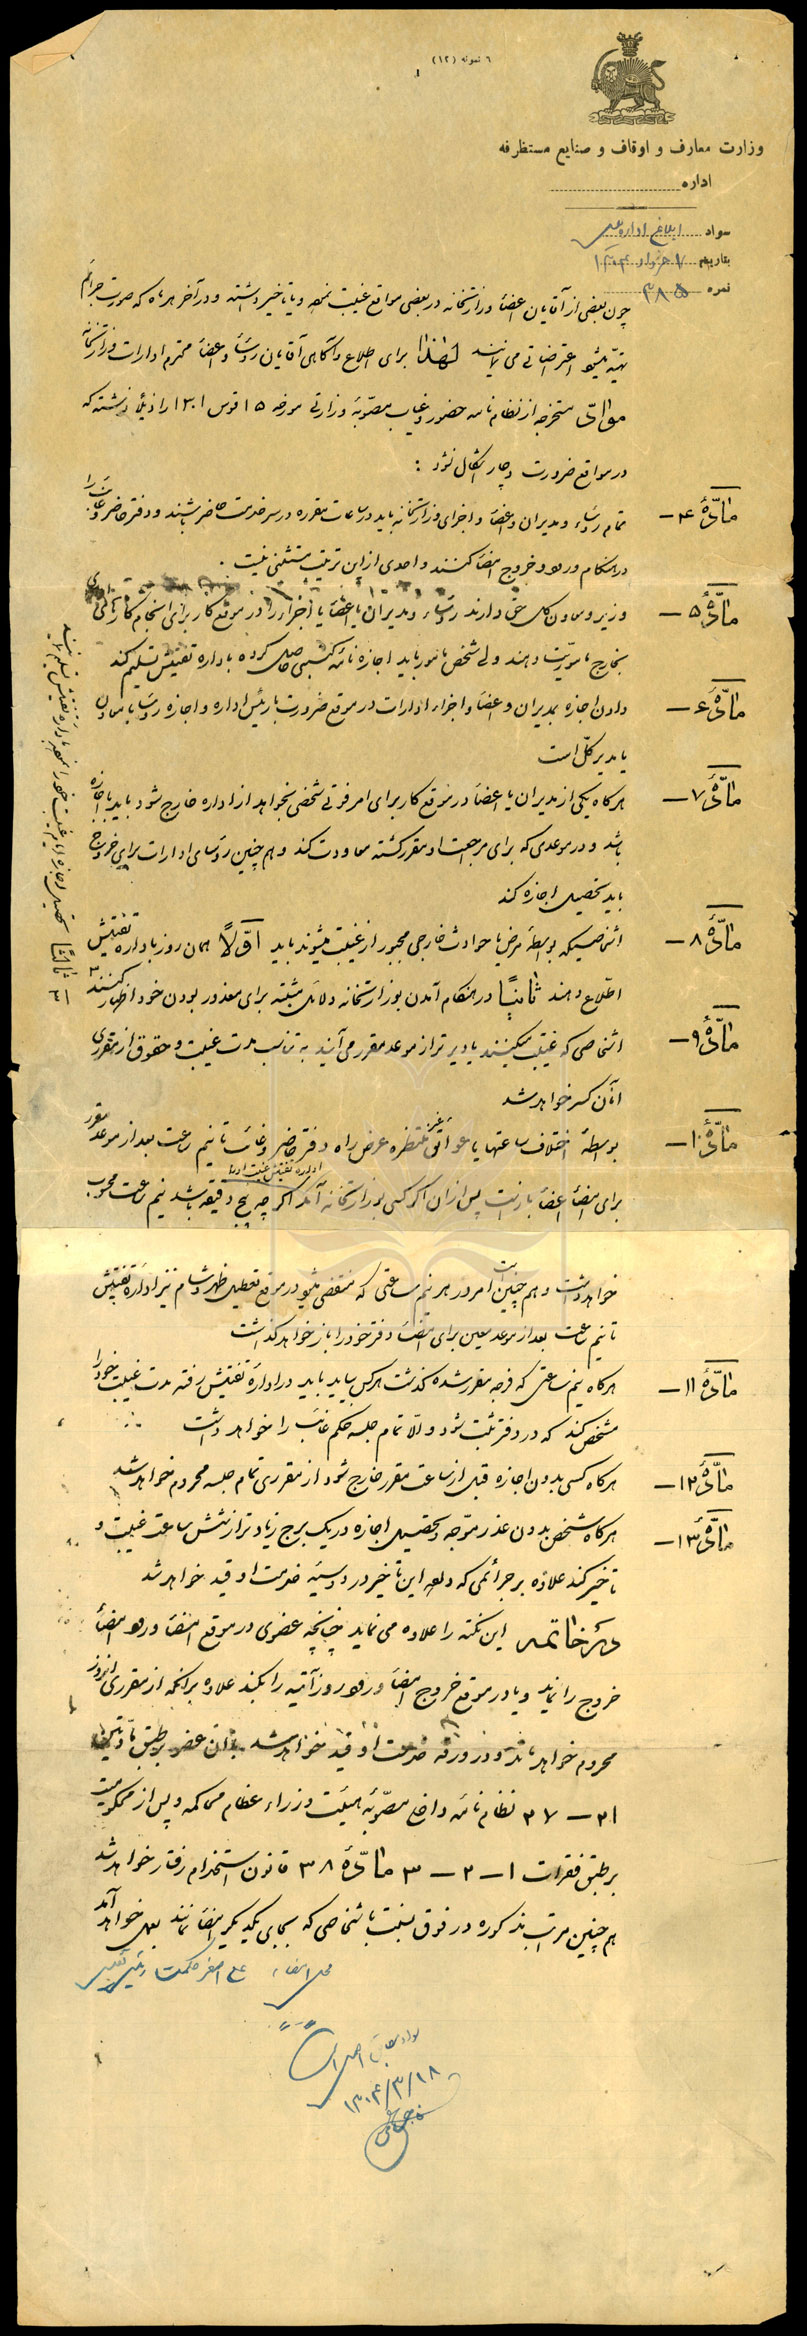 ٦ نمونه (١٢)
وزارت معارف و اوقاف و صنایع مستظرفه
اداره
سواد ابلاغ اداره تفتیش
بتاریخ ٧ خرداد ١٣٠٤
نمره ٣٨٥
چون بعضی از آقایان اعضاء وزارتخانه در بعضی مواقع غیبت نموده و یا تاخیر داشته و در آخر هر ماه که صورت جرائم
تهیه میشود اعتراضاتی می نمایند لهذا برای اطلاع و آگاهی آقایان رؤساء و اعضاء محترم ادارات وزارتخانه
موادّی مستخرجه از نظام نامه حضور و غیاب مصوّبهٔ وزارتی مورخه ١٥ قوس ١٣٠١ را ذیلاً نوشته که
در مواقع ضرورت دچار اشکال نشود :
مادّهٔ ٤ – تمام رؤساء و مدیران و اعضاء و اجزای وزارتخانه باید در ساعات مقرره در سر خدمت حاضر باشند و دفتر حاضر و غائب را
در هنگام ورود و خروج امضاء کنند و احدی از این ترتیب مستثنی نیست .
مادّهٔ ٥ – وزیر و معاون کل حق دارند رؤساء و مدیران یا اعضاء یا اجزاء را در موقع کار برای انجام کارهای اداری
بخارج مأموریت دهند ولی شخص مأمور باید اجازه نامهٔ کتبی حاصل کرده باداره تفتیش تسلیم کند
مادّهٔ ٦ – دادن اجازه بمدیران و اعضاء و اجزاء ادارات در موقع ضرورت با رئیس اداره و اجازه رؤسا با معاون
یا مدیر کلّ است
مادّهٔ ٧ – هر گاه یکی از مدیران یا اعضاء در موقع کار برای امر فوتی شخصی بخواهد از اداره خارج شود باید با اجازه
باشد و در موعدی که برای مراجعت او مقرر گشته معاودت کند و هم چنین رؤسای ادارات برای خروج
باید تحصیل اجازه کند
مادّهٔ ٨ – اشخاصیکه بواسطهٔ مرض یا حوادث خارجی مجبور از غیبت میشوند باید اوّلاً همان روز باداره تفتیش
اطّلاع دهند ثانیاً در هنگام آمدن بوزارتخانه دلایل مثبته برای معذور بودن خود اظهار کنند ٣
٣ – ثالثاً تحصیل اجازه ایام غیبت خود را نموده باداره تفتیش تسلیم نمایند
مادّهٔ ٩ – اشخاصی که غیبت میکنند یا دیرتر از موعد مقرر می آیند به تناسب مدت غیبت و حقوق از مقرری
آنان کسر خواهد شد
مادّهٔ ١٠ – بواسطهٔ اختلاف ساعتها یا عوائق غیر منتظره عرض راه دفتر حاضر و غائب تا نیم ساعت بعد از موعد مقرر
برای امضاء اعضاء باز است پس از آن اگر کسی بوزارتخانه آمد اداره تفتیش غیبت او را اگر چه پنج دقیقه باشد نیم ساعت محسوب
خواهد داشت و هم چنین است امر در هر نیم ساعتی که منقضی میشود در موقع تعطیل ظهر و شام نیز اداره تفتیش
تا نیم ساعت بعد از موعد معین برای امضاء دفتر خود را باز خواهد گذاشت
مادّهٔ ١١ – هر گاه نیم ساعتی که فرجه مقرر شده گذشت هر کس بیاید باید در ادارهٔ تفتیش رفته مدت غیبت خود را
مشخص کند که در دفتر ثبت شود و الّا تمام جلسه حکم غائب را خواهد داشت
مادّهٔ ١٢ – هر گاه کسی بدون اجازه قبل از ساعت مقرر خارج شود از مقرری تمام جلسه محروم خواهد شد
مادّهٔ ١٣ – هر گاه شخص بدون عذر موجّه و تحصیل اجازه در یک برج زیادتر از شش ساعت غیبت و
تاخیر کند علاوه بر جرائمی که داده این تاخیر در دوسیه خدمت او قید خواهد شد
در خاتمه این نکته را علاوه می نماید چنانچه عضوی در موقع امضاء ورود امضاء
خروج را نماید و یا در موقع خروج امضاء ورود روز آتیه را بکند علاوه بر آنکه از مقرری آنروز
محروم خواهد ماند و در ورقه خدمت او قید خواهد شد با آن عضو بر طبق مادّتین
٣١ – ٣٧ نظام نامه داخلی مصوّبهٔ هیئت وزراء عظام محاکمه و پس از محکومیت
بر طبق فقرات ١ – ٢ – ٣ مادّهٔ ٣٨ قانون استخدام رفتار خواهد شد
هم چنین مراتب مذکوره در فوق نسبت باشخاصی که بجای یکدیگر امضاء نمایند بعمل خواهد آمد
محل امضاء علی اصغر حکمت رئیس تفتیش
سواد مطابق اصل است
١٣٠٤/٣/١٨